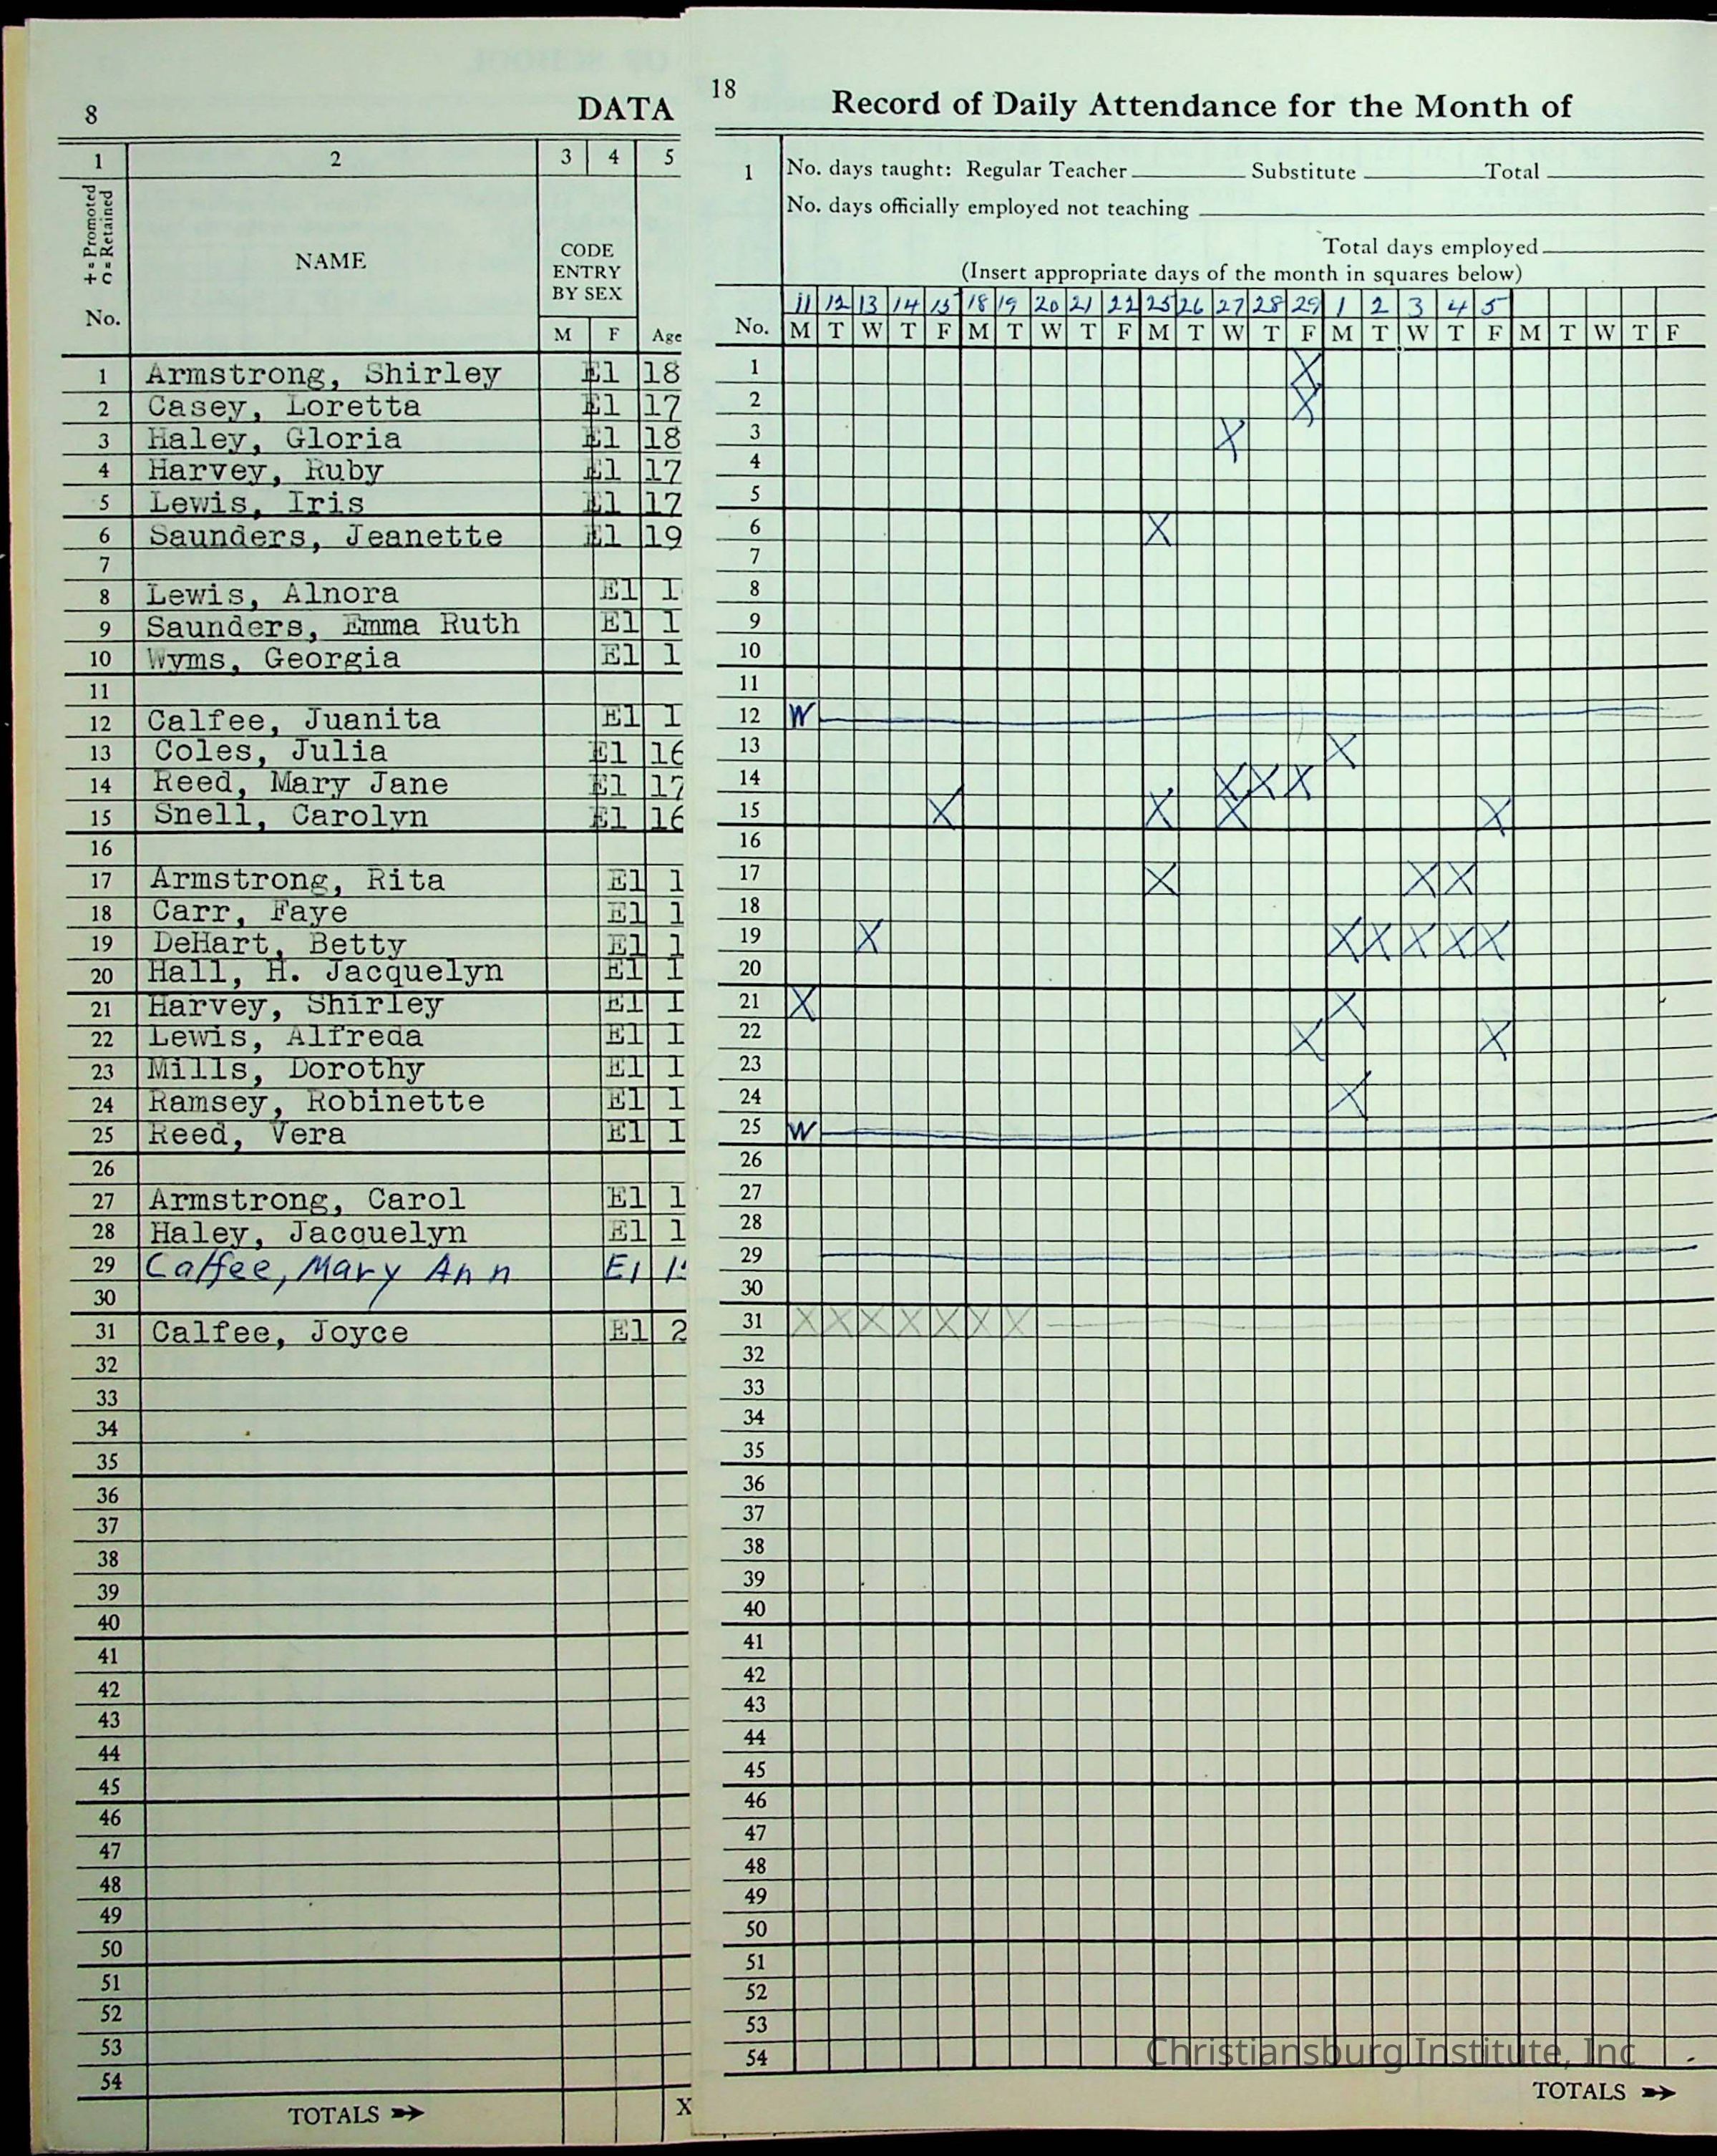 8
DATA
1 2 3 4 5
+ = Promoted
C = Retained
No.
NAME
CODE
ENTRY
BY SEX
M F Age
1 Armstrong, Shirley El 18
2 Casey, Loretta El 17
3 Haley, Gloria El 18
4 Harvey, Ruby El 17
5 Lewis, Iris El 17
6 Saunders, Jeanette El 19
7
8 Lewis, Alnora El 1
9 Saunders, Emma Ruth El 1
10 Wyms, Georgia El 1
11
12 Calfee, Juanita El 1
13 Coles, Julia El 16
14 Reed, Mary Jane El 17
15 Snell, Carolyn El 16
16
17 Armstrong, Rita El 1
18 Carr, Faye El 1
19 DeHart, Betty El 1
20 Hall, H. Jacquelyn El 1
21 Harvey, Shirley El 1
22 Lewis, Alfreda El 1
23 Mills, Dorothy El 1
24 Ramsey, Robinette El 1
25 Reed, Vera El 1
26
27 Armstrong, Carol El 1
28 Haley, Jacquelyn El 1
29 Calfee, Mary Ann El
30
31 Calfee, Joyce El 2
32
33
34
35
36
37
38
39
40
41
42
43
44
45
46
47
48
49
50
51
52
53
54
TOTALS X
18
Record of Daily Attendance for the Month of
1 No. days taught: Regular Teacher Substitute Total
No. days officially employed not teaching
Total days employed
(Insert appropriate days of the month in squares below)
11 12 13 14 15 18 19 20 21 22 25 26 27 28 29 1 2 3 4 5
No. M T W T F M T W T F M T W T F M T W T F M T W T F
1 X
2 X
3 X
4
5
6 X
7
8
9
10
11
12 W
13 X
14 X X X
15 X X X X
16
17 X X X
18
19 X X X X X X
20
21 X X
22 X X
23
24 X
25 W
26
27
28
29
30
31 X X X X X X X
32
33
34
35
36
37
38
39
40
41
42
43
44
45
46
47
48
49
50
51
52
53
54
Christiansburg Institute, Inc
TOTALS